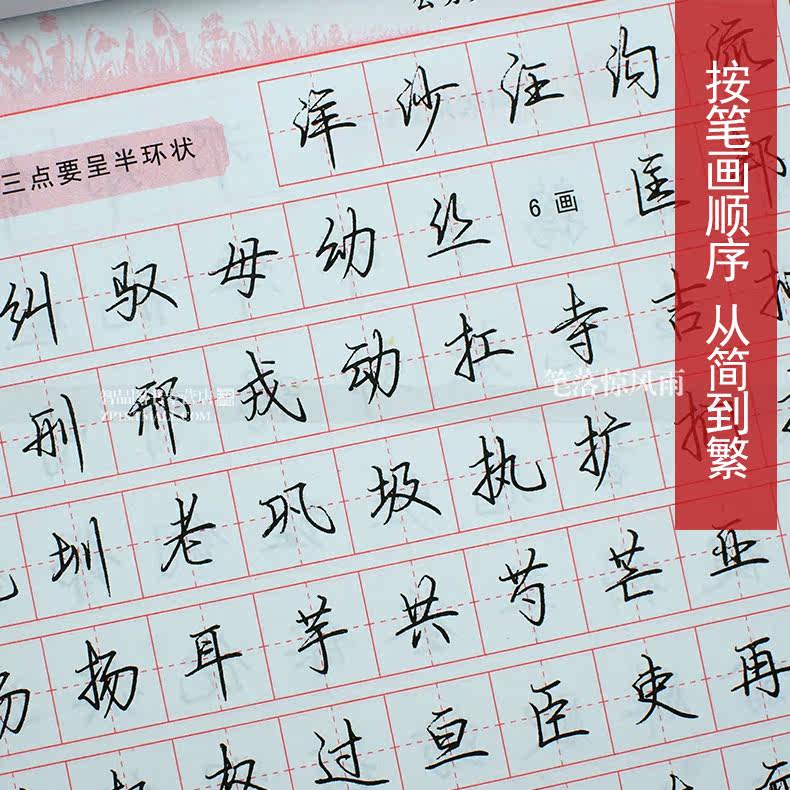 洋 沙 汪 沟 流
三点要呈半环状
纠 驭 母 幼 丝 6画 匡 邦
刑 邢 戎 动 扛 寺 吉 扣
圳 老 巩 圾 执 扩 扪
场 扬 耳 芋 共 芍 芒 亚
过 亘 臣 吏 再
按笔画顺序 从简到繁
笔落惊风雨